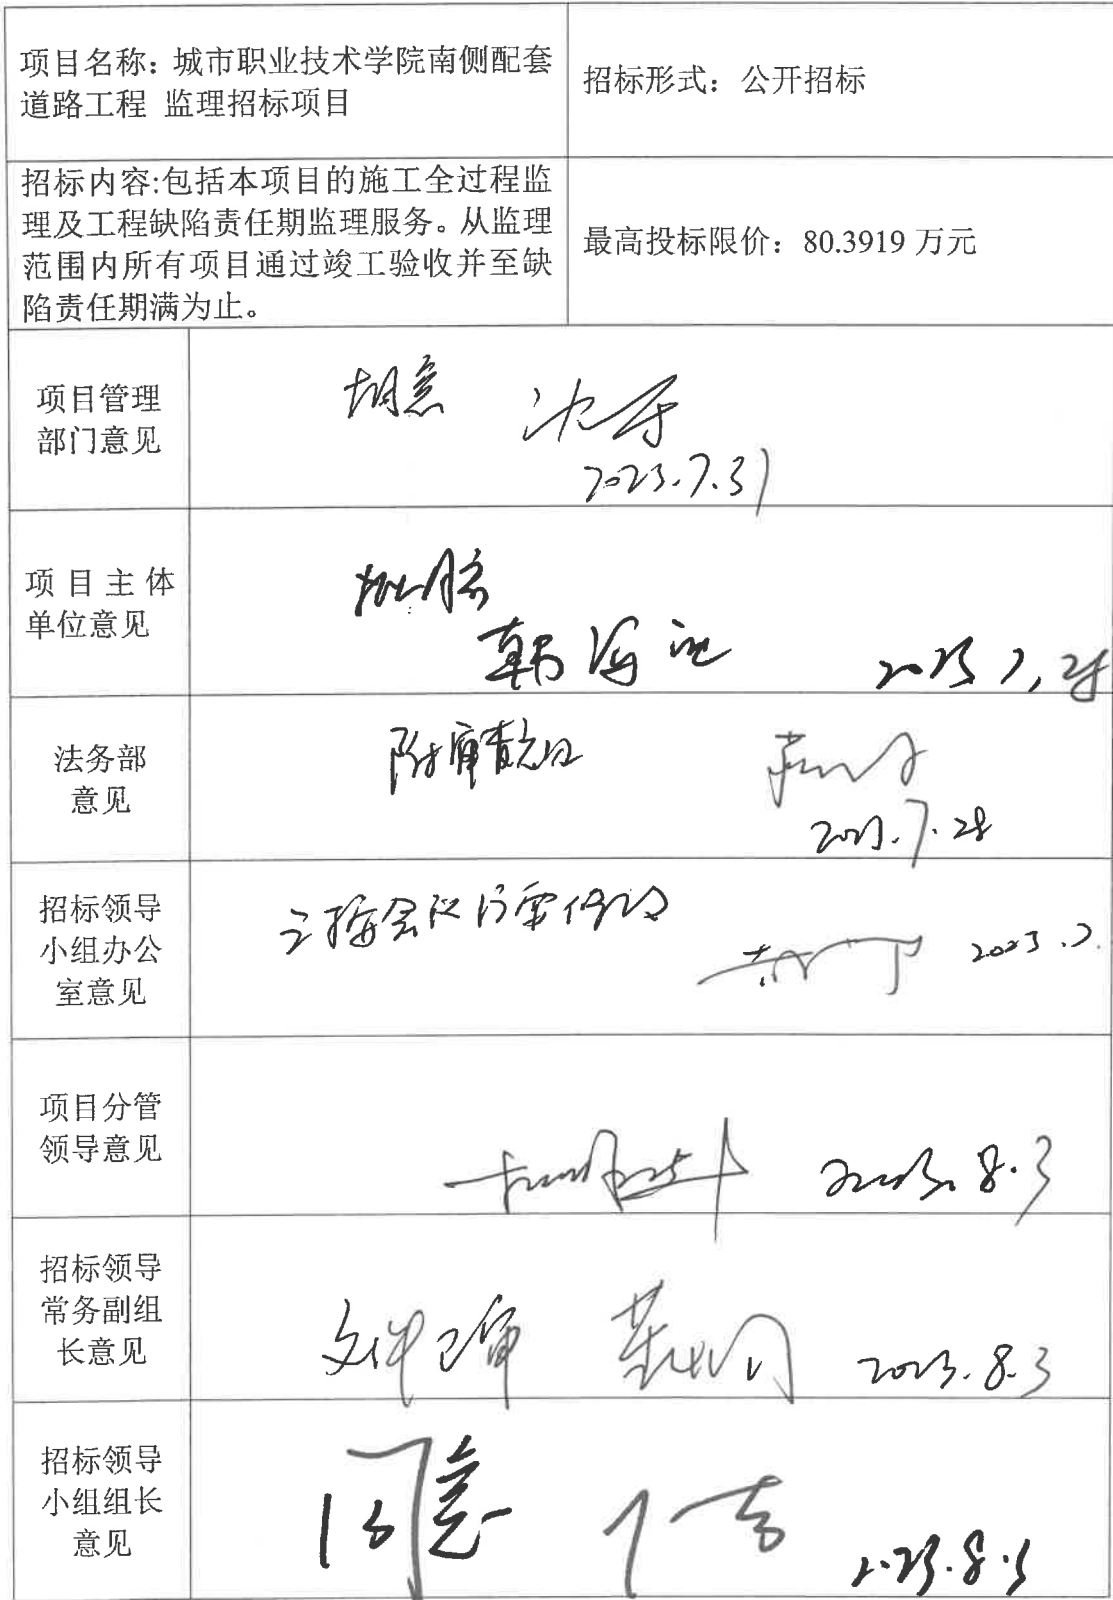 项目名称：城市职业技术学院南侧配套
道路工程 监理招标项目
招标形式：公开招标
招标内容:包括本项目的施工全过程监
理及工程缺陷责任期监理服务。从监理
范围内所有项目通过竣工验收并至缺
陷责任期满为止。
最高投标限价：80.3919 万元
项目管理
部门意见
2023.7.31
项目主体
单位意见
韩海
法务部
意见
2023.7.28
招标领导
小组办公
室意见
2023.7.
项目分管
领导意见
2023.8.3
招标领导
常务副组
长意见
文件已审
2023.8.3
招标领导
小组组长
意见
同意
2023.8.3